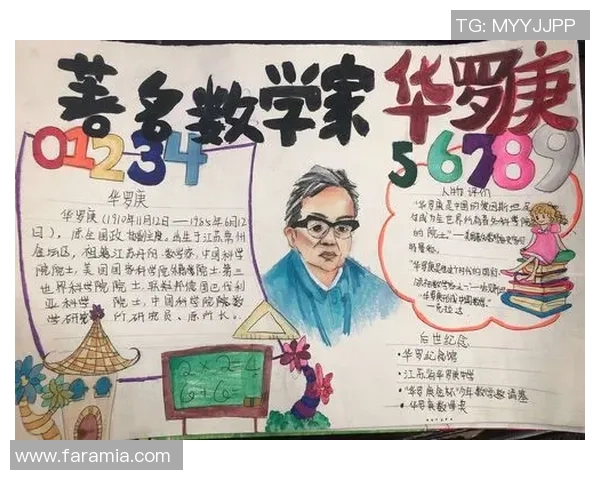 TG: MYYJJPP
著名数学家 华罗庚
01234
56789
华罗庚
华罗庚(1910年11月12日——1985年6月12
日),原全国政协副主席。出生于江苏常州
金坛区,祖籍江苏丹阳。数学家,中国科学
院院士,美国国家科学院外籍院士,第三
世界科学院院士,联邦德国巴伐利
亚科学院院士,中国科学院数
学研究所研究员、原所长。
人物评价
"华罗庚是中国的爱因斯坦,足
够成为全世界所有著名科学院
的院士。"
后世纪念
·华罗庚纪念馆
·江苏省华罗庚中学
·"华罗庚金杯"少年数学邀请赛
·华罗庚数学奖
2×2=4
6+6=
www.faramia.com